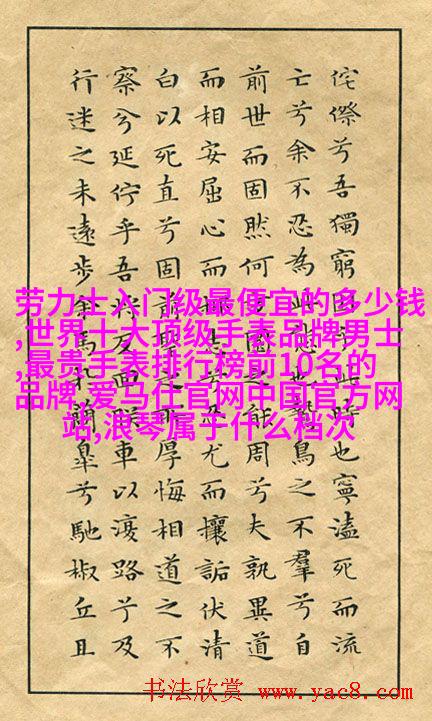 侘傺兮吾獨窮困乎此時也寧溘死而流
亡兮余不忍為此態也鷙鳥之不羣兮自
前世而固然何方圜之能周兮夫孰異道
而相安屈心而抑志兮忍尤而攘詬伏清
白以死直兮固前聖之所厚悔相道之不
察兮延佇乎吾将反回朕車以復路兮及
行迷之未遠步余馬於蘭皋兮馳椒丘且
劳力士入门级最便宜的多少钱
,世界十大顶级手表品牌男士
,最贵手表排行榜前10名的
品牌,爱马仕官网中国官方网
站,浪琴属于什么档次
书法欣赏 www.yac8.com